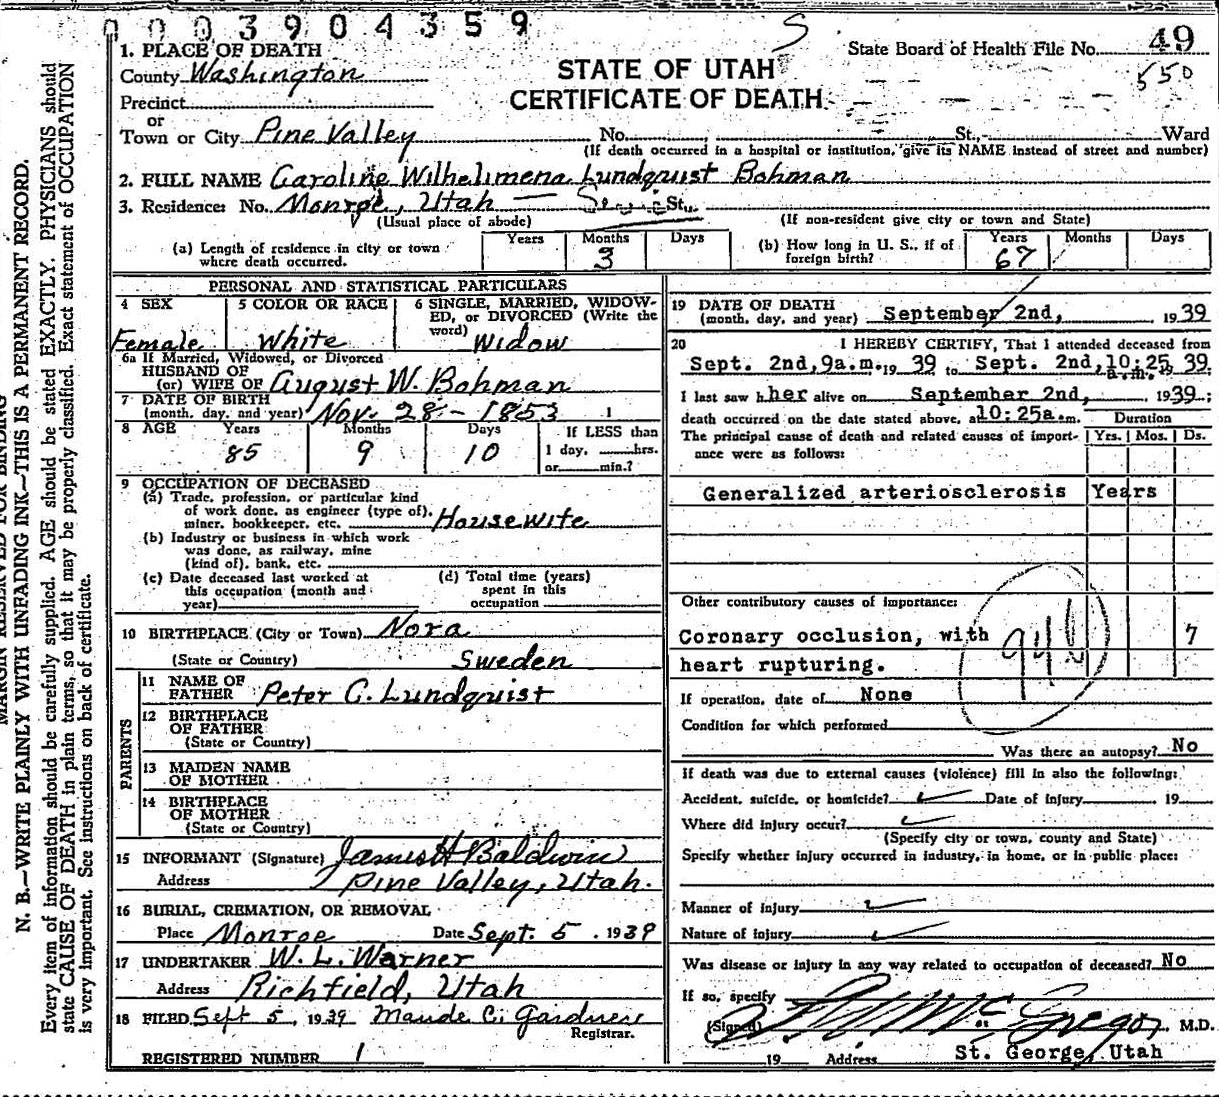 0003904359
S
State Board of Health File No. 49
550
1. PLACE OF DEATH
County Washington
STATE OF UTAH
CERTIFICATE OF DEATH
Precinct
or
Town or City Pine Valley No. , St., Ward
(If death occurred in a hospital or institution, give its NAME instead of street and number)
2. FULL NAME Caroline Wilhelimena Lundquist Bohman
3. Residence: No. Monroe, Utah — St.,
(Usual place of abode) (If non-resident give city or town and State)
(a) Length of residence in city or town where death occurred. Years Months 3 Days
(b) How long in U. S., if of foreign birth? Years 67 Months Days
PERSONAL AND STATISTICAL PARTICULARS
4 SEX Female
5 COLOR OR RACE White
6 SINGLE, MARRIED, WIDOWED, or DIVORCED (Write the word) Widow
6a If Married, Widowed, or Divorced
HUSBAND OF
(or) WIFE OF August W. Bohman
7 DATE OF BIRTH
(month, day, and year) Nov. 28 - 1853
8 AGE Years 85 Months 9 Days 10
If LESS than
1 day, hrs.
or min.?
9 OCCUPATION OF DECEASED
(a) Trade, profession, or particular kind
of work done, as engineer (type of),
miner, bookkeeper, etc. Housewife
(b) Industry or business in which work
was done, as railway, mine
(kind of), bank, etc.
(c) Date deceased last worked at
this occupation (month and
year)
(d) Total time (years)
spent in this
occupation
10 BIRTHPLACE (City or Town) Nora
(State or Country) Sweden
PARENTS
11 NAME OF
FATHER Peter C. Lundquist
12 BIRTHPLACE
OF FATHER
(State or Country)
13 MAIDEN NAME
OF MOTHER
14 BIRTHPLACE
OF MOTHER
(State or Country)
15 INFORMANT (Signature) James H Baldwin
Address Pine Valley, Utah.
16 BURIAL, CREMATION, OR REMOVAL
Place Monroe Date Sept. 5, 1939
17 UNDERTAKER W. L. Warner
Address Richfield, Utah
18 FILED Sept 5, 1939 Maude C. Gardner
Registrar.
REGISTERED NUMBER 1
19 DATE OF DEATH
(month, day, and year) September 2nd, 1939
20 I HEREBY CERTIFY, That I attended deceased from
Sept. 2nd, 9a.m. 19 39 to Sept. 2nd, 10:25 a.m. 19 39.
I last saw her alive on September 2nd, 1939;
death occurred on the date stated above, at 10:25a.m.
Duration
The principal cause of death and related causes of importance were as follows: Yrs. Mos. Ds.
Generalized arteriosclerosis Years
Other contributory causes of importance:
Coronary occlusion, with 7
heart rupturing.
If operation, date of None
Condition for which performed
Was there an autopsy? No
If death was due to external causes (violence) fill in also the following:
Accident, suicide, or homicide? Date of injury 19
Where did injury occur?
(Specify city or town, county and State)
Specify whether injury occurred in industry, in home, or in public place:
Manner of injury
Nature of injury
Was disease or injury in any way related to occupation of deceased? No
If so, specify
(Signed) McGregor, M.D.
19 Address St. George, Utah
MARGIN RESERVED FOR BINDING
N. B.—WRITE PLAINLY WITH UNFADING INK—THIS IS A PERMANENT RECORD.
Every item of information should be carefully supplied. AGE should be stated EXACTLY. PHYSICIANS should
state CAUSE OF DEATH in plain terms, so that it may be properly classified. Exact statement of OCCUPATION
is very important. See instructions on back of certificate.